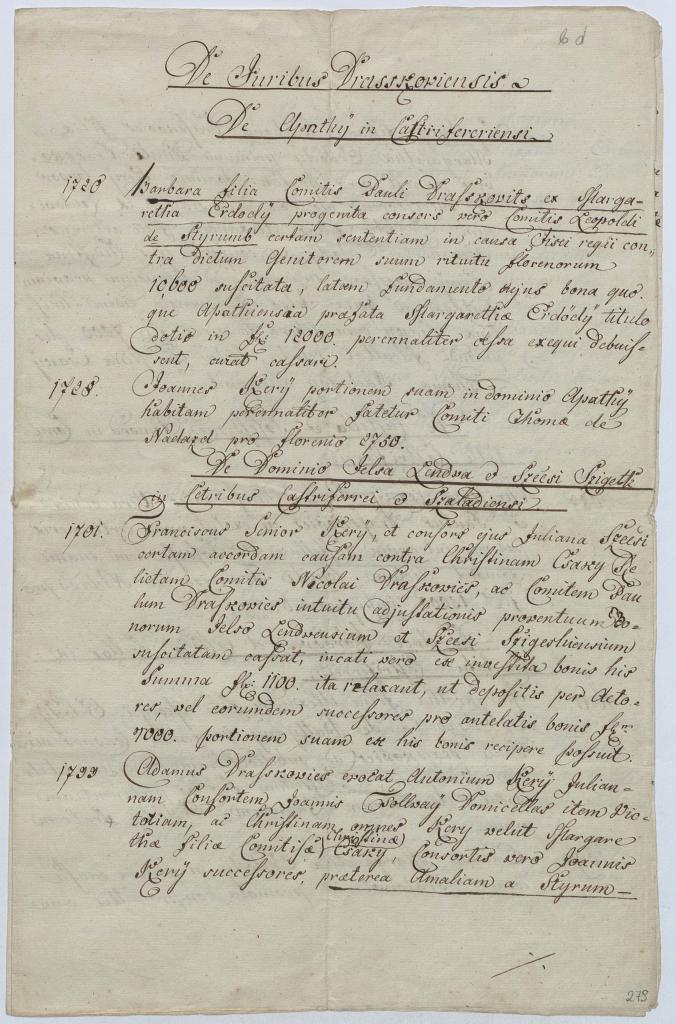 6 d
De Juribus Drasskoviensis
De Apathÿ in Castriferreriensi
1720 Barbara filia Comitis Pauli Draskovits ex Marga-
retha Erdödÿ progenita consors vero Comitis Leopoldi
de Styrumb certam sententiam in causa Fisci regii con-
tra Dictum Genitorem suum rituitu florenorum
10,600 suscitata, latam fundamento cujus bona quo-
que Apathiensia præfata Margarethæ Erdödÿ titulo
dotis in fl: 12000. perennaliter cessa exequi debuis-
sent, curat cassari.
1728. Joannes Kerÿ portionem suam in dominio Apathÿ
habitam perennaliter fatetur Comiti Thomæ de
Nadasd pro florenis 8750.
De Dominio Jelsa Lendva & Széesi Szigeth
in Cetribus Castriferrei & Szaladiensi
1701. Franciscus Senior Kerÿ, et consors ejus Juliana Széesi
certam accordam causam contra Christinam Csaky Re
lictam Comitis Nicolai Draskovics, ac Comitem Pau
lum Draskovics intuitu adjustationis proventuum Bo-
norum Jelso Lendvensium et Széesi Szigethiensium
suscitatam cassat, incati vero ex investita bonis his
Summa fl: 1100. ita relaxant, ut depositis per Acto-
res, vel eorumdem successores pro antelatis bonis fl
7000. portionem suam ex his bonis recipere possint.
1799 Adamus Drasskovics evocat Antonium Kerÿ Julian-
nam Consortem Joannis Domicellas item Vic-
toriam, ac Christinam omnes Kery velut Margare
thæ filiæ Comitissæ (Christinæ) Csaky, Consortis vero Joannis
Kerÿ successores, præterea Amaliam a Styrum-
./.
279